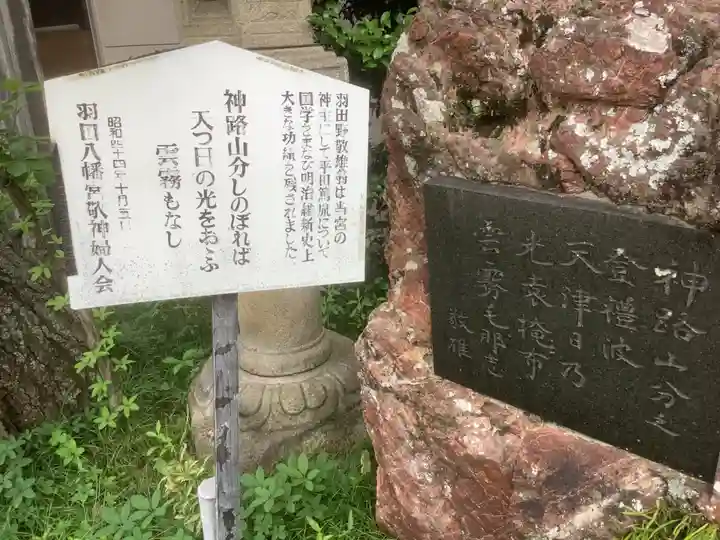 羽田野敬雄翁は当宮の
神主にして平田篤胤について
国学をまなび明治維新史上
大きな功績を残されました
神路山分しのぼれば
天つ日の光をおふ
雲霧もなし
昭和四十四年十月三日
羽田八幡宮敬神婦人会
神路山分之
登禮波
天津日乃
光袁掩布
雲霧毛那志
敬雄